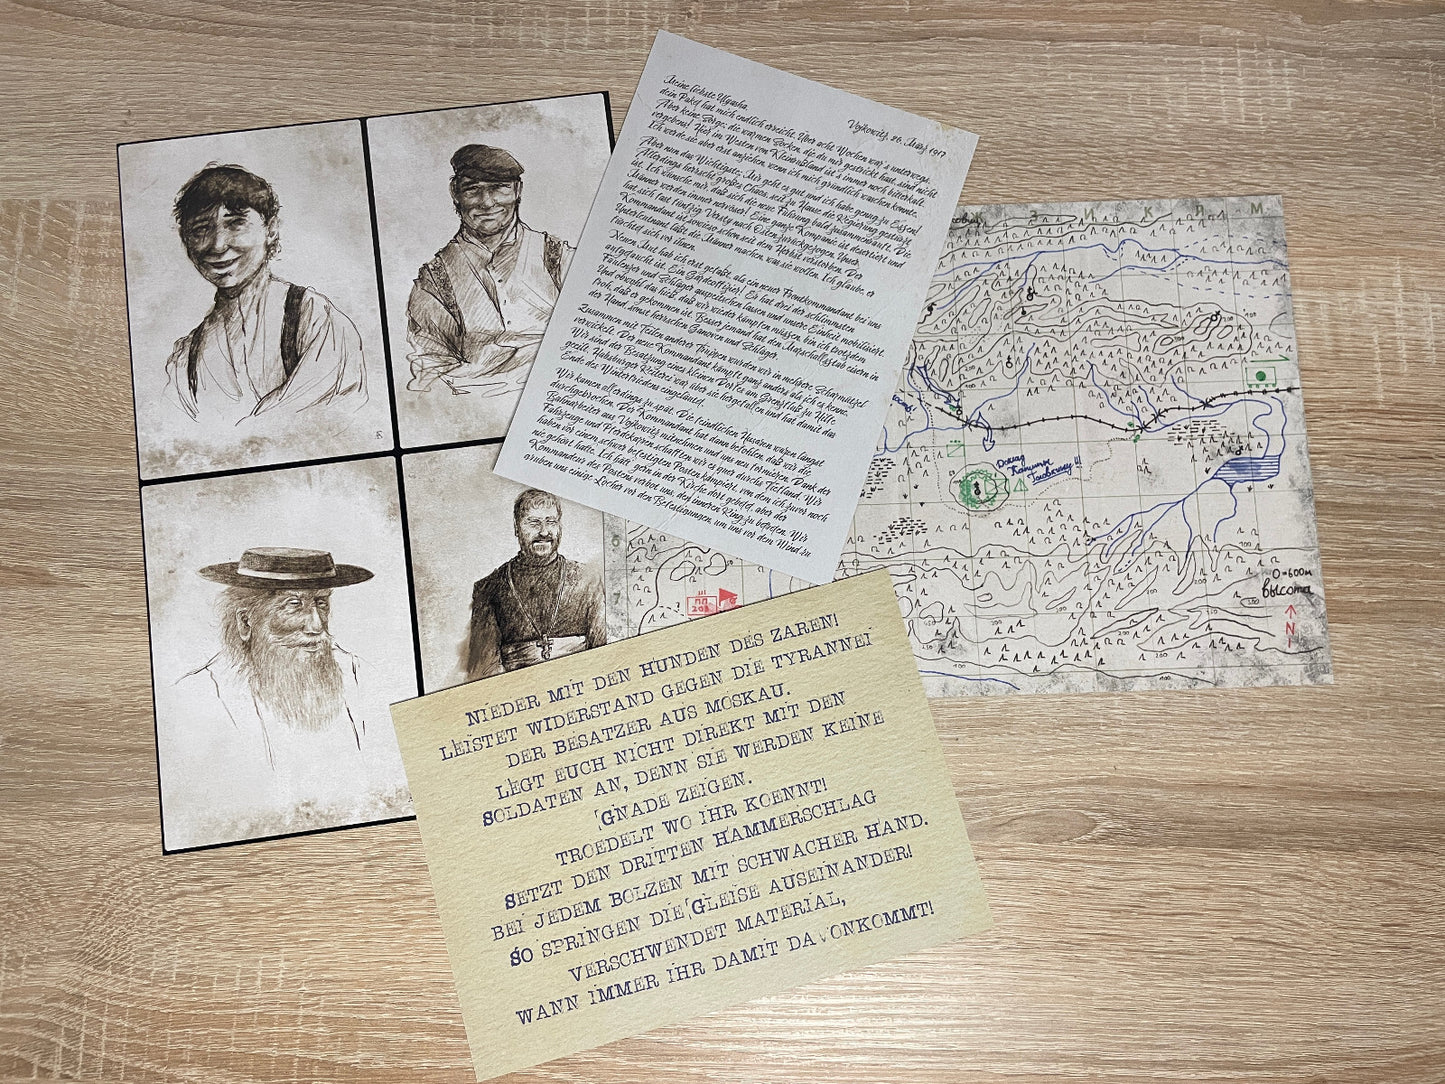 Meine liebste Ulyasha,
Vojkowitz, 26. März 1917
dein Paket hat mich endlich erreicht. Über acht Wochen war's unterwegs.
Aber keine Sorge, die warmen Socken, die du mir gestrickt hast, sind nicht
vergebens! Hier im Westen von Kleinrußland ist's immer noch bitterkalt.
Ich werde sie aber erst anziehen, wenn ich mich gründlich waschen konnte.
Aber nun das Wichtigste: Mir geht es gut und ich habe genug zu Essen!
Allerdings herrscht großes Chaos, seit zu Hause die Regierung gestürzt
ist. Ich wünsche mir, daß sich die neue Führung bald zusammenrauft. Die
Männer werden immer nervöser! Eine ganze Kompanie ist desertiert und
hat sich fast fünfzig Versty nach Osten zurückgezogen. Unser
Kommandant ist sowieso schon seit dem Herbst verstorben. Der
Unterleutnant läßt die Männer machen, was sie wollen. Ich glaube, er
fürchtet sich vor ihnen.
Neuen Mut hab ich erst gefaßt, als ein neuer Frontkommandant bei uns
aufgetaucht ist. Ein Gardeoffizier! Er hat drei der schlimmsten
Faulenzer und Schläger auspeitschen lassen und unsere Einheit mobilisiert.
Und obwohl das hieß, daß wir wieder kämpfen müssen, bin ich trotzdem
froh, daß er gekommen ist. Besser jemand hat den Marschallstab eisern in
der Hand, sonst herrschen Ganoven und Schläger.
Zusammen mit Teilen anderer Truppen wurden wir in mehrere Scharmützel
verwickelt. Der neue Kommandant kämpft ganz anders als ich es kenne.
Wir sind der Besatzung eines kleinen Dorfes am Grenzfluß zu Hilfe
geeilt. Habsburger Reiterei war über sie hergefallen und hat damit das
Ende des Winterfriedens eingeläutet.
Wir kamen allerdings zu spät. Die feindlichen Husaren waren längst
durchgebrochen. Der Kommandant hat dann befohlen, daß wir die
Bahnarbeiter aus Vojkowitz mitnehmen und uns neu formieren. Dank der
Fahrzeuge und Pferdekarren schafften wir es quer durchs Tiefland. Wir
haben vor einem schwer befestigten Posten kampiert, von dem ich zuvor noch
nie gehört hatte. Ich hätt' gern in der Kirche dort gebetet, aber der
Kommandeur des Postens verbot uns, den inneren Ring zu betreten. Wir
gruben uns einige Löcher vor den Befestigungen, um uns vor dem Wind zu
Ж З И К Л М
Доклад
Капитану
0=600м
высота
N
ПП
203
7
NIEDER MIT DEN HUNDEN DES ZAREN!
LEISTET WIDERSTAND GEGEN DIE TYRANNEI
DER BESATZER AUS MOSKAU.
LEGT EUCH NICHT DIREKT MIT DEN
SOLDATEN AN, DENN SIE WERDEN KEINE
GNADE ZEIGEN.
TROEDELT WO IHR KOENNT!
SETZT DEN DRITTEN HAMMERSCHLAG
BEI JEDEM BOLZEN MIT SCHWACHER HAND.
SO SPRINGEN DIE GLEISE AUSEINANDER!
VERSCHWENDET MATERIAL,
WANN IMMER IHR DAMIT DAVONKOMMT!